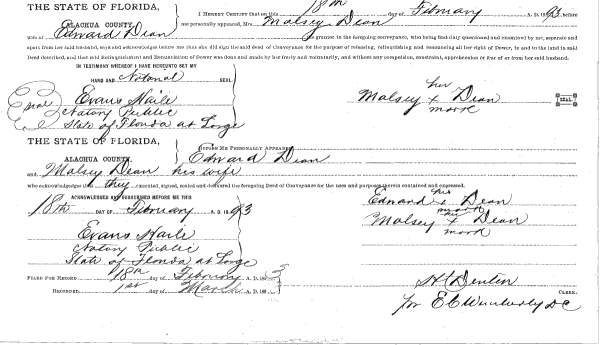 THE STATE OF FLORIDA,
ALACHUA COUNTY.
I HEREBY CERTIFY that on this 18th day of February A. D. 1893, before
me personally appeared, Mrs Malsey Dean
wife of Edward Dean
a grantor in the foregoing conveyance, who being first duly questioned and examined by me, separate and
apart from her said husband, says and acknowledges before me that she did sign the said deed of Conveyance for the purpose of releasing, relinquishing and renouncing all her right of Dower, in and to the land in said
Deed described, and that said Relinquishment and Renunciation of Dower was done and made by her freely and voluntarily, and without any compulsion, constraint, apprehension or fear of or from her said husband.
IN TESTIMONY WHEREOF I HAVE HEREUNTO SET MY
HAND AND Notarial SEAL
Evans Haile
Notary Public
State of Florida at Large
Seal
her
Malsey x Dean
mark
SEAL
THE STATE OF FLORIDA,
ALACHUA COUNTY.
BEFORE ME PERSONALLY APPEARED
Edward Dean
and Malsey Dean his wife
who acknowledges that they executed, signed, sealed and delivered the foregoing Deed of Conveyance for the uses and purposes therein contained and expressed.
ACKNOWLEDGED AND SUBSCRIBED BEFORE ME THIS
18th DAY OF February A. D. 1893
Evans Haile
Notary Public
State of Florida at Large
his
Edward x Dean
mark
her
Malsey x Dean
mark
FILED FOR RECORD 18th day of February A. D. 1893
RECORDED 1st day of March A. D. 189
H Denton
CLERK.
for E C Wimberly DC